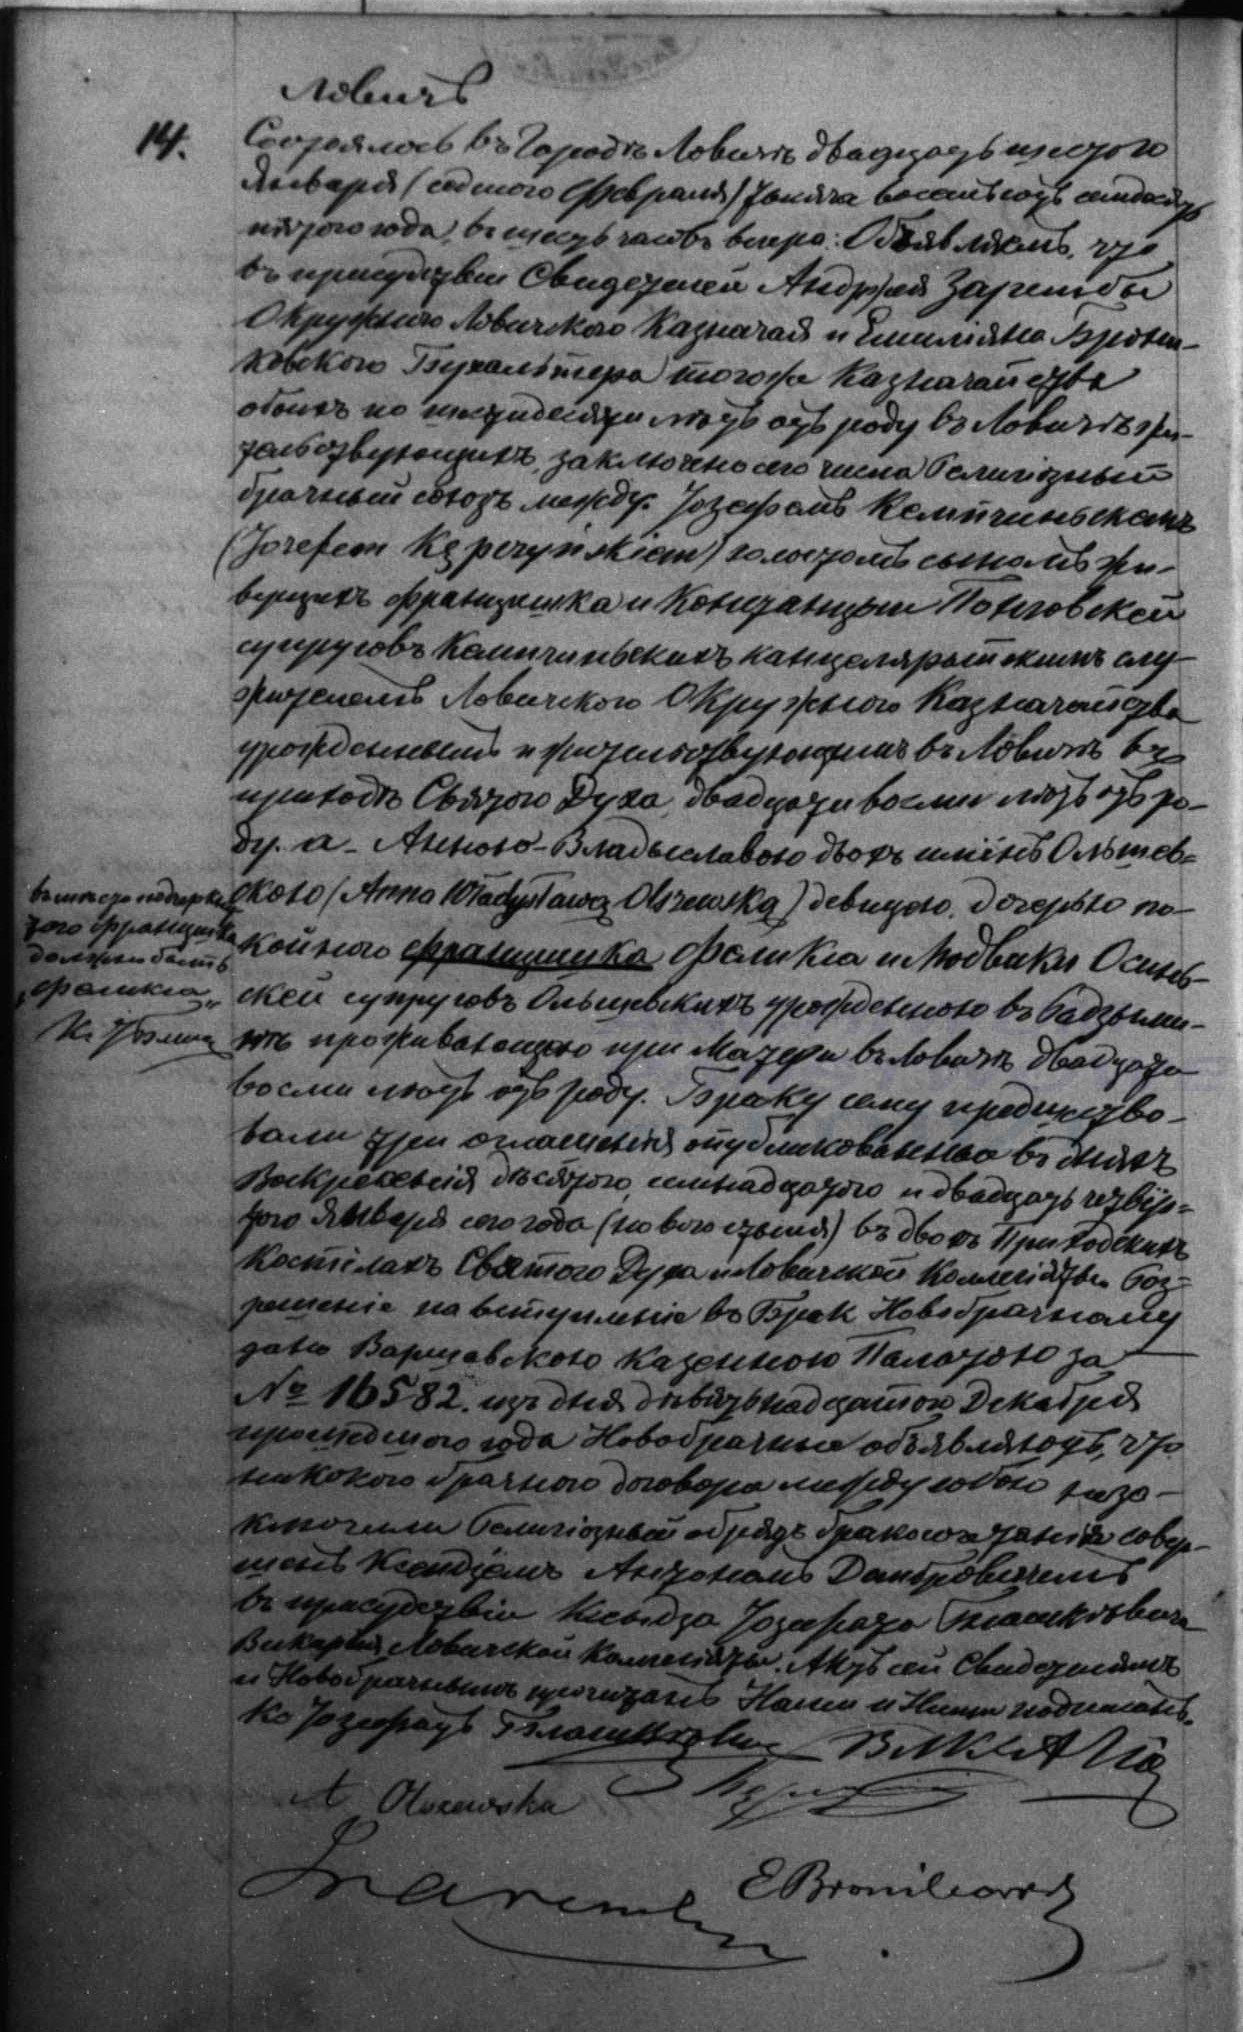 Ловичъ
14.
Состоялось въ Городѣ Ловичѣ двадцать шестого
Января (седьмого Февраля) тысяча восемьсотъ семьдесятъ
пятого года, въ шесть часовъ вечера. Объявляемъ, что
въ присутствіи Свидетелей Андржея Зарембы
Окружного Ловичского Казначая и Емиліяна Брони-
ковского Бухгальтера тогоже Казначейства
обоихъ по шестидесяти лѣтъ отъ роду въ Ловичѣ жи-
тельствующихъ, заключенъ сего числа Религіозный
брачный союзъ между: Іозефомъ Кемпчиньскимъ
(Józefem Kępczyńskiem) холостымъ сыномъ жи-
вущихъ Францишка и Констанцыи
супруговъ Кемпчиньскихъ канцелярыйскимъ слу-
жителемъ Ловичского Окружного Казначейства
урожденнымъ и жительствующимъ въ Ловичѣ въ
приходѣ Святого Духа, двадцати восьми лѣтъ отъ ро-
ду. а - Анною-Владыславою двохъ имёнъ Ольшев-
скою (Anna Władysława Olszewska) девицею, дочерью по-
койного Францишка Феликса и Людвики Осинь-
ской супруговъ Ольшевскихъ урожденною въ Радзыми-
нѣ проживающею при Матери въ Ловичѣ двадцати
восьми лѣтъ отъ роду. Браку сему предшество-
вали три оглашенія опубликованныя въ дняхъ
Воскресенія десятого, семнадцатого и двадцать четвер-
того Января сего года (нового стыля) въ двохъ Приходскихъ
Костелахъ Святого Духа и Ловичской Коллегіяты. Роз-
решеніе на вступленіе въ Бракъ Новобрачному
дано Варшавскою Казенною Палатою за
№ 16582. изъ дня девятьнадцатого Декабря
прошедшого года Новобрачные объявляютъ, что
никакого брачного договора между собою неза-
ключили Религіозный обрядъ бракосочетанія совер-
шенъ Ксендзомъ Антономъ Домбровичемъ
въ присудствіи Ксендза Іозафата
Викарія Ловичской Коллегіяты. Актъ сей Свидетелямъ
и Новобрачнымъ прочитанъ Нами и Ними подписанъ.
Кс Іозафатъ Викарій
A Olszewska
Zaremba
E Bronikowski
вместо подчеркну
того Францишка
должно быть
„Феликса„